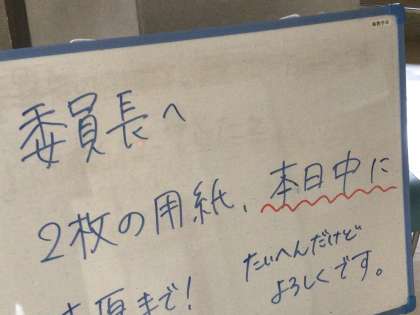 委員長へ
2枚の用紙、本日中に
原まで!
たいへんだけど
よろしくです。